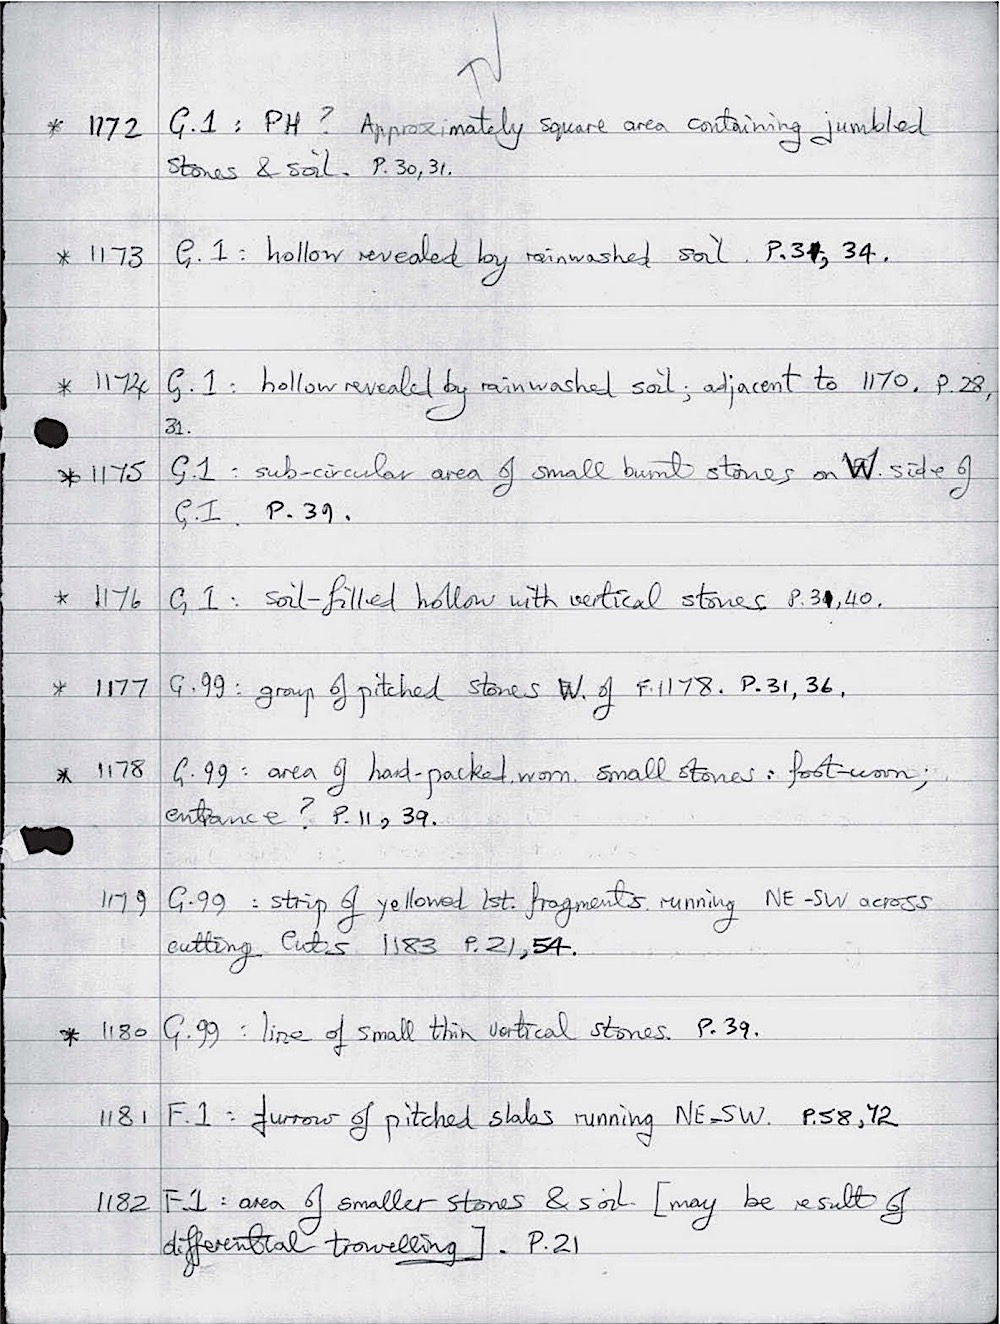 * 1172 G.1 : PH ? Approximately square area containing jumbled
stones & soil. P. 30, 31.
* 1173 G.1 : hollow revealed by rainwashed soil. P.31, 34.
* 1174 G.1 : hollow revealed by rainwashed soil; adjacent to 1170. P.28,
31.
* 1175 G.1 : sub-circular area of small burnt stones on W. side of
G.I. P. 39.
* 1176 G I : soil-filled hollow with vertical stones P.31, 40.
* 1177 G.99 : group of pitched stones W. of F.1178. P.31, 36.
* 1178 G.99 : area of hard-packed, worn. small stones : foot-worn;
entrance ? P.11, 39.
1179 G.99 : strip of yellowed lst. fragments running NE-SW across
cutting. Cuts 1183 P.21, 54.
* 1180 G.99 : line of small thin vertical stones. P. 39.
1181 F.1 : furrow of pitched slabs running NE-SW. P.58, 72
1182 F.1 : area of smaller stones & soil [may be result of
differential trowelling]. P.21